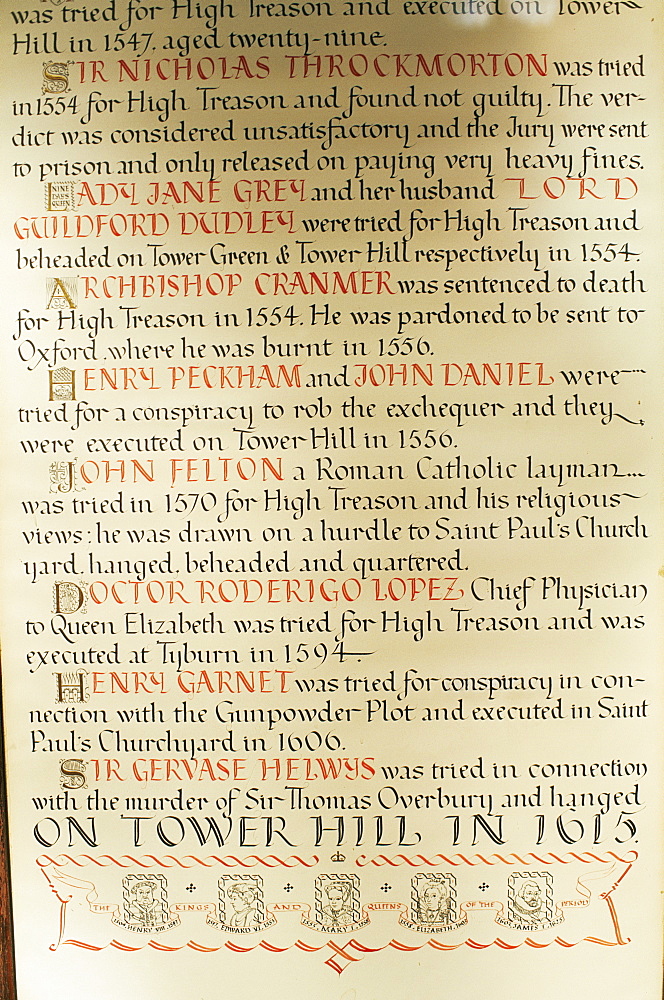 was tried for High Treason and executed on Tower
Hill in 1547, aged twenty-nine.
SIR NICHOLAS THROCKMORTON was tried
in 1554 for High Treason and found not guilty. The ver-
dict was considered unsatisfactory and the Jury were sent
to prison and only released on paying very heavy fines.
LADY JANE GREY and her husband LORD
GUILDFORD DUDLEY were tried for High Treason and
beheaded on Tower Green & Tower Hill respectively in 1554.
ARCHBISHOP CRANMER was sentenced to death
for High Treason in 1554. He was pardoned to be sent to
Oxford, where he was burnt in 1556.
HENRY PECKHAM and JOHN DANIEL were
tried for a conspiracy to rob the exchequer and they
were executed on Tower Hill in 1556.
JOHN FELTON a Roman Catholic layman
was tried in 1570 for High Treason and his religious
views: he was drawn on a hurdle to Saint Paul's Church
yard, hanged, beheaded and quartered.
DOCTOR RODERIGO LOPEZ Chief Physician
to Queen Elizabeth was tried for High Treason and was
executed at Tyburn in 1594.
HENRY GARNET was tried for conspiracy in con-
nection with the Gunpowder Plot and executed in Saint
Paul's Churchyard in 1606.
SIR GERVASE HELWYS was tried in connection
with the murder of Sir Thomas Overbury and hanged
ON TOWER HILL IN 1615.
THE KINGS AND QUEENS OF THE PERIOD
HENRY VIII EDWARD VI MARY I ELIZABETH JAMES I